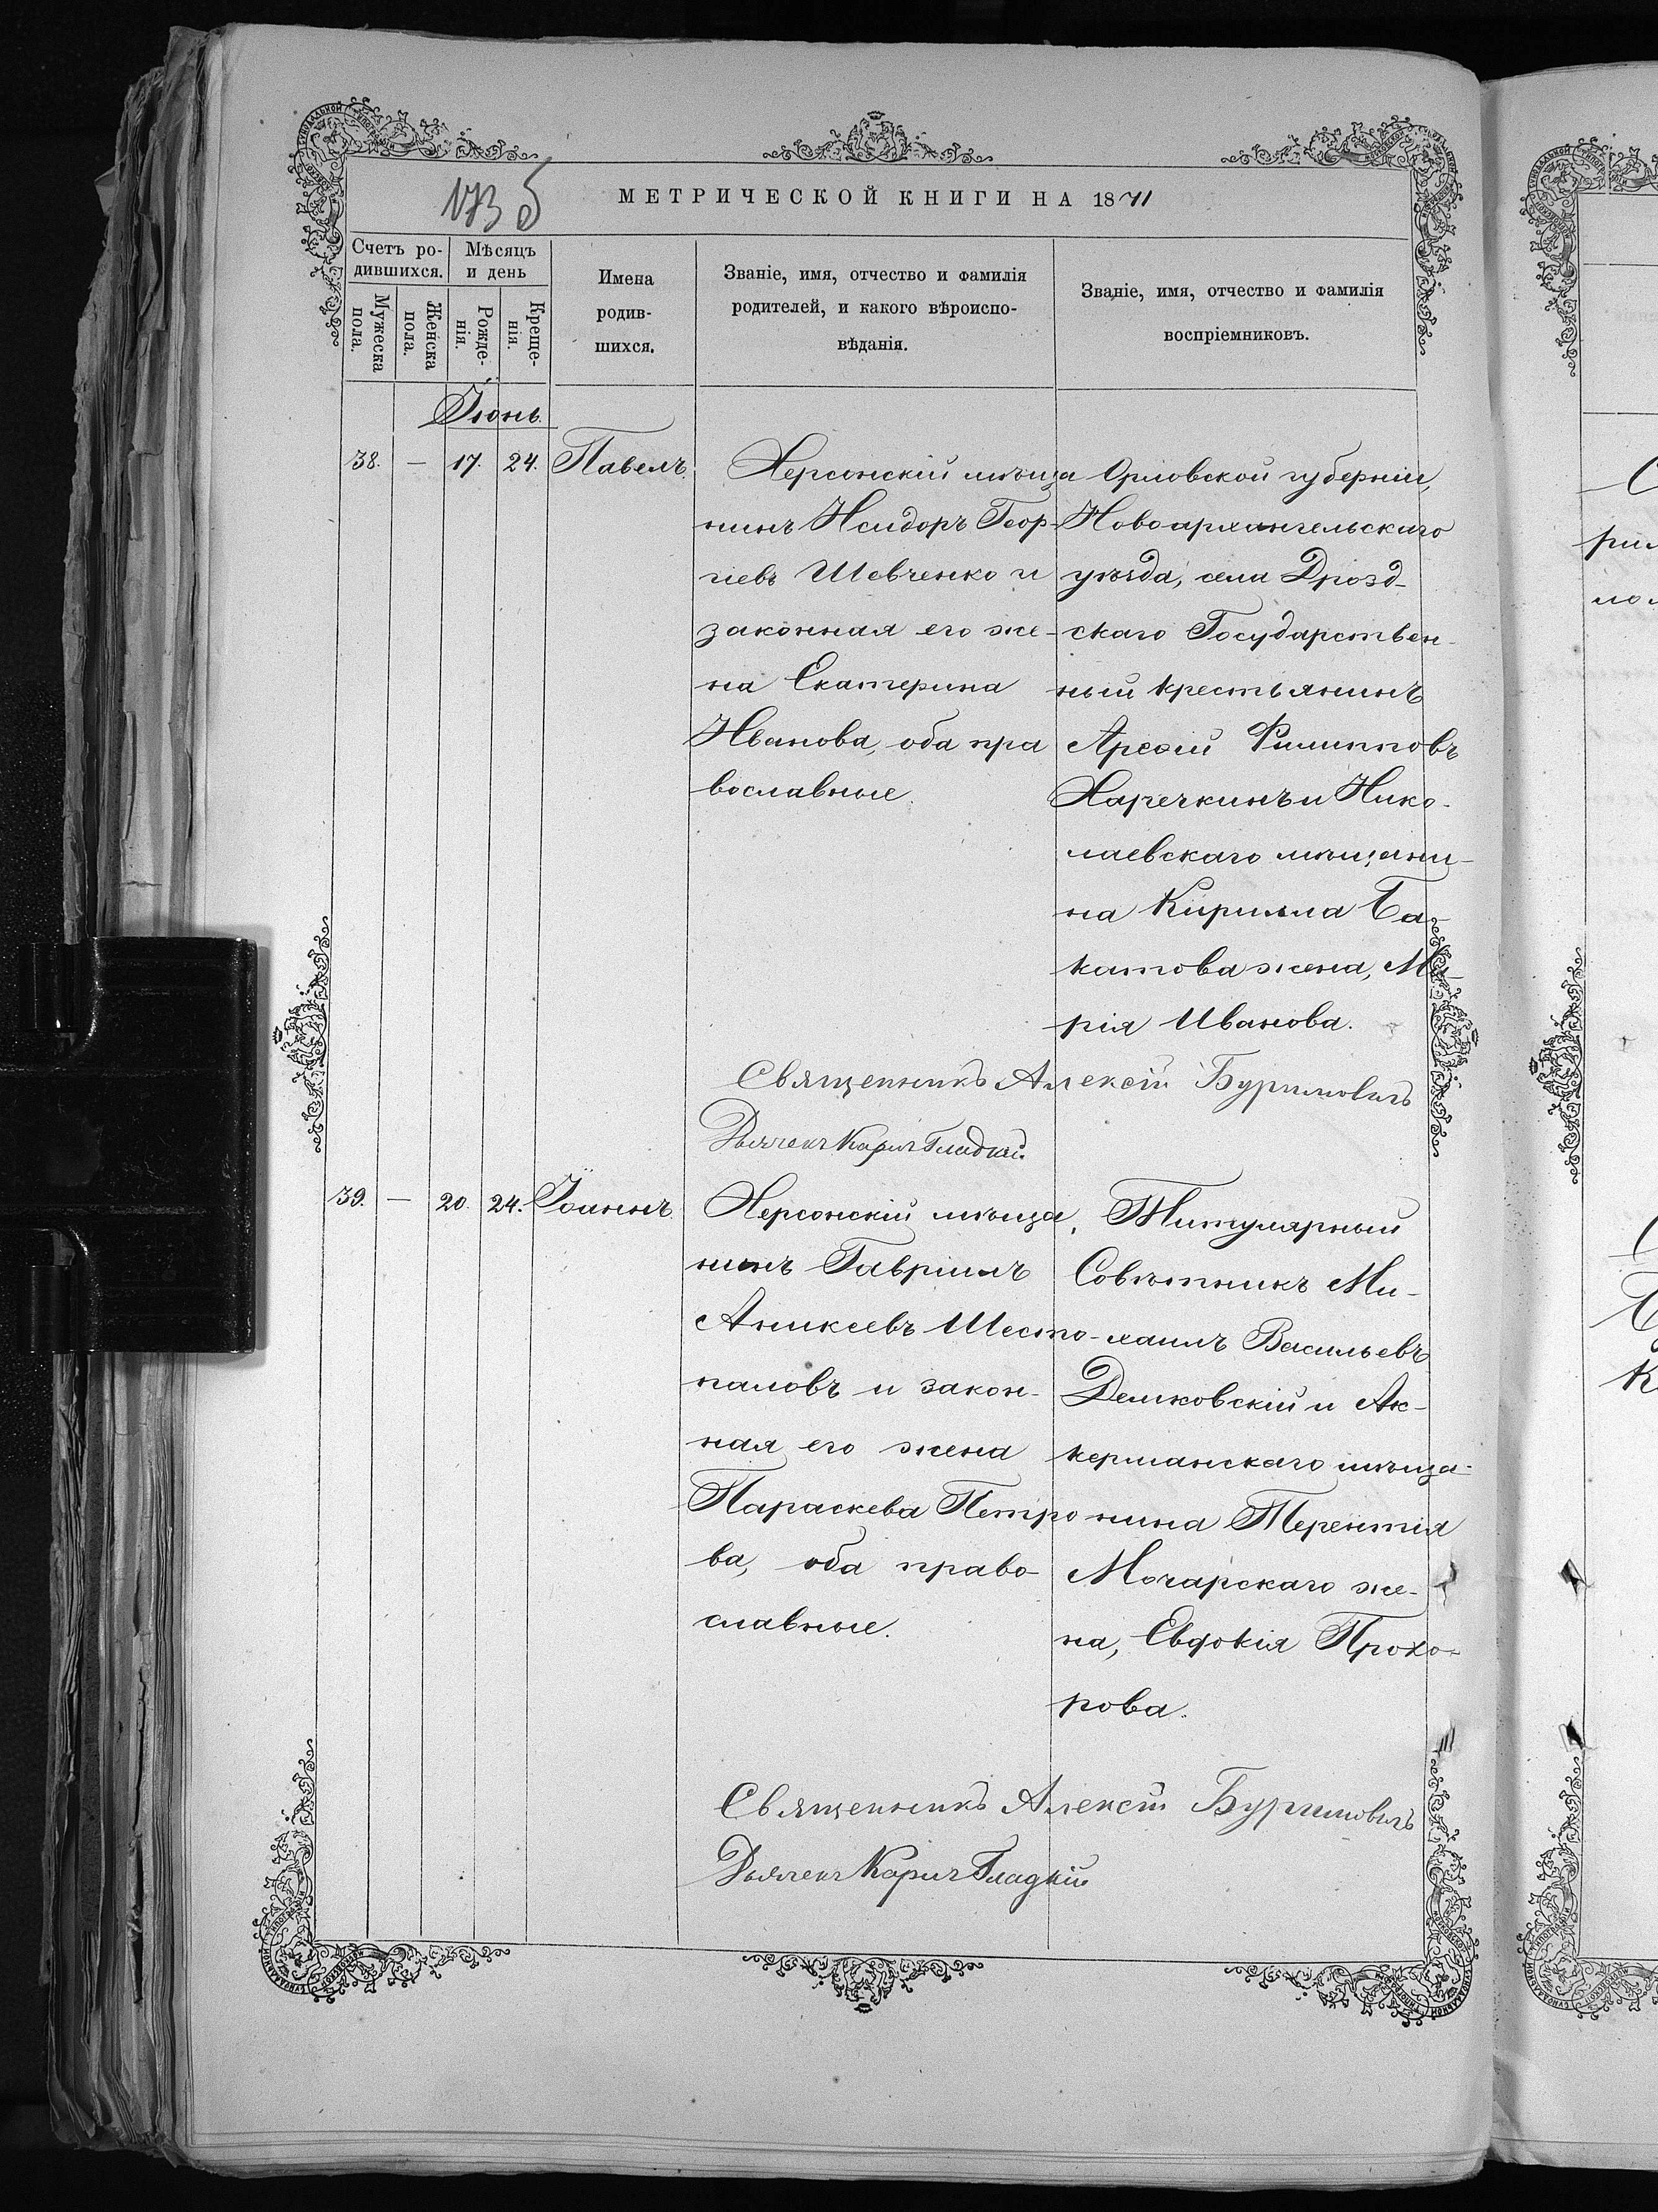 173 б
МЕТРИЧЕСКОЙ КНИГИ НА 1871
Счетъ ро-
дившихся.
Мѣсяцъ
и день
Мужеска
пола.
Женска
пола.
Рожде-
нія.
Креще-
нія.
Имена
родив-
шихся.
Званіе, имя, отчество и фамилія
родителей, и какого вѣроиспо-
вѣданія.
Званіе, имя, отчество и фамилія
воспріемниковъ.
Іюнь.
38. — 17. 24. Павелъ.
Херсонскій мѣща
нинъ Исидоръ Геор-
гіевъ Шевченко и
законная его же-
на Екатерина
Иванова, оба пра
вославные.
Орловской губерніи,
Новоархангельскаго
уѣзда, села Дрозд-
скаго Государствен-
ный крестьянинъ
Арсеій Филипповъ
Харечкинъ и Нико-
лаевскаго мѣщани-
на Кирилла Ба-
катова жена, Ма-
рія Иванова.
Священникъ Алексій Буримовичъ
Дьячекъ Карпъ Гладкій
39. — 20. 24. Іоаннъ.
Херсонскій мѣща
нинъ Гавріилъ
Аникеевъ Шесто-
паловъ и закон-
ная его жена
Параскева Петро
ва, оба право-
славные.
Титулярный
Совѣтникъ Ми-
хаилъ Васильевъ
Демковскій и Ак-
керманскаго мѣща-
нина Терентія
Мочарскаго же-
на, Евфокія Прохо-
рова.
Священникъ Алексій Буримовичъ
Дьячекъ Карпъ Гладкій